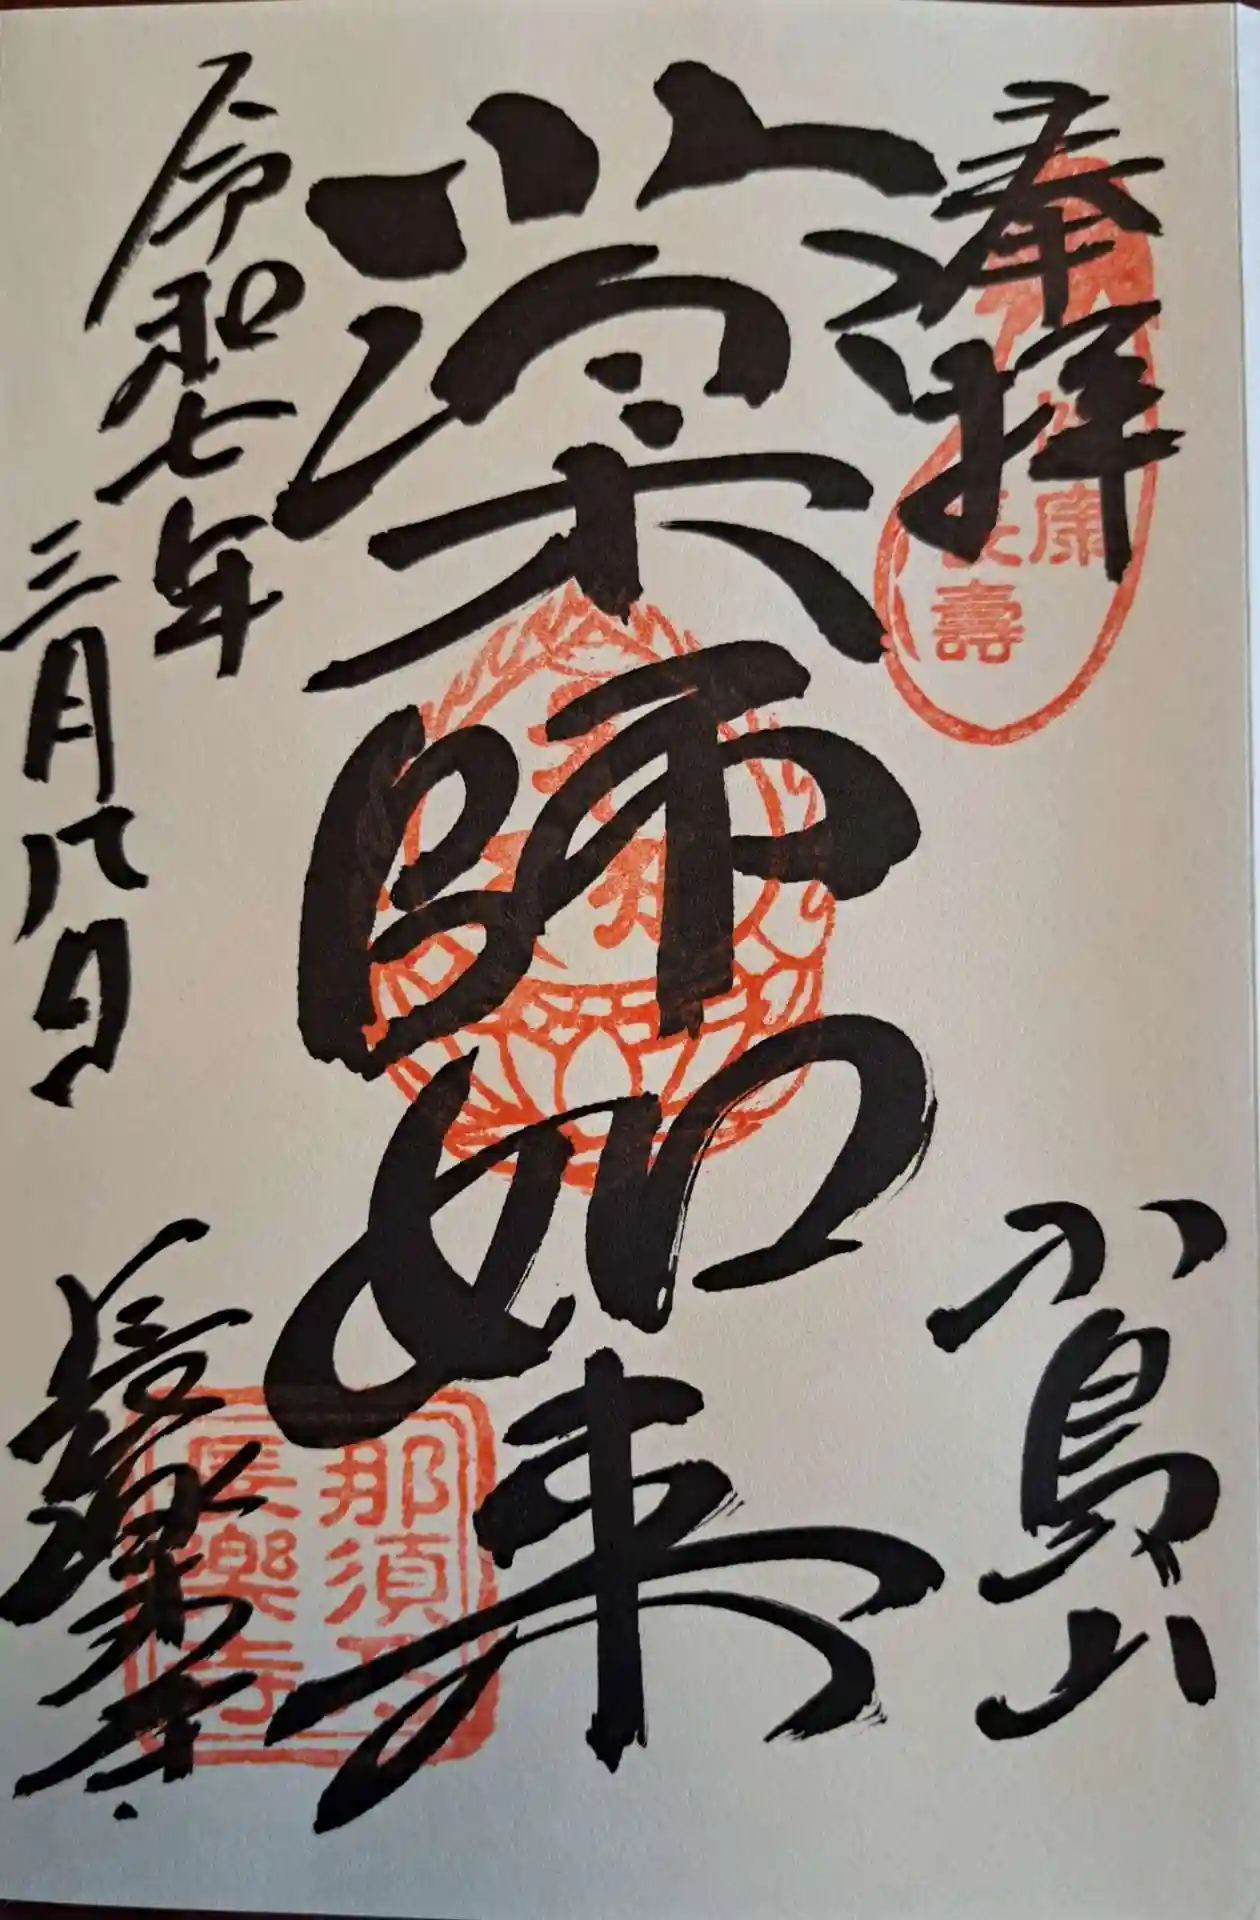 奉拝
康
長壽
小島山
薬師如来
令和七年
三月八日
長楽寺
那須
長樂寺